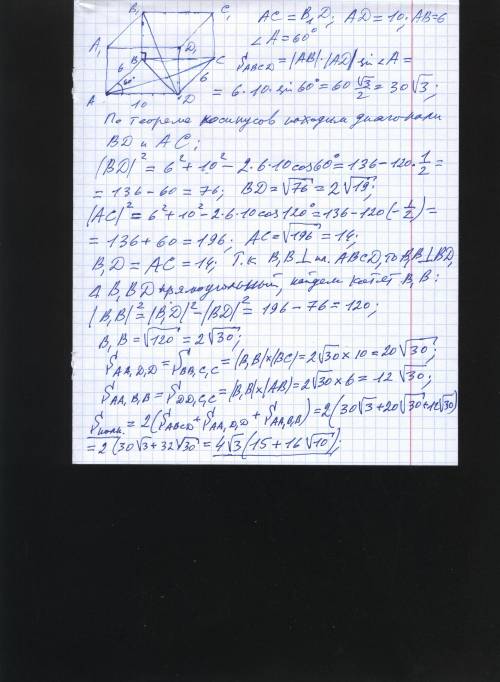 B₁ C₁ AC = B₁D; AD = 10; AB = 6
∠A = 60°
A₁ D₁ S ABCD = |AB|·|AD| sin ∠A =
6 B C
60° 6 = 6·10·sin 60° = 60 √3/2 = 30√3;
A 10 D
По теореме косинусов находим диагонали
BD и AC;
|BD|² = 6² + 10² − 2·6·10 cos 60° = 136 − 120·1/2 =
= 136 − 60 = 76; BD = √76 = 2√19;
|AC|² = 6² + 10² − 2·6·10 cos 120° = 136 − 120(−1/2) =
= 136 + 60 = 196; AC = √196 = 14;
B₁D = AC = 14; Т.к B₁B ⊥ пл. ABCD, то B₁B ⊥ BD,
Δ B₁BD прямоугольный, найдем катет B₁B:
|B₁B|² = |B₁D|² − |BD|² = 196 − 76 = 120;
B₁B = √120 = 2√30;
S AA₁D₁D = S BB₁C₁C = |B₁B|×|BC| = 2√30 × 10 = 20√30;
S AA₁B₁B = S DD₁C₁C = |B₁B|×|AB| = 2√30 × 6 = 12√30;
S полн. = 2(S ABCD + S AA₁D₁D + S AA₁B₁B) = 2(30√3 + 20√30 + 12√30)
= 2(30√3 + 32√30 = 4√3(15 + 16√10);